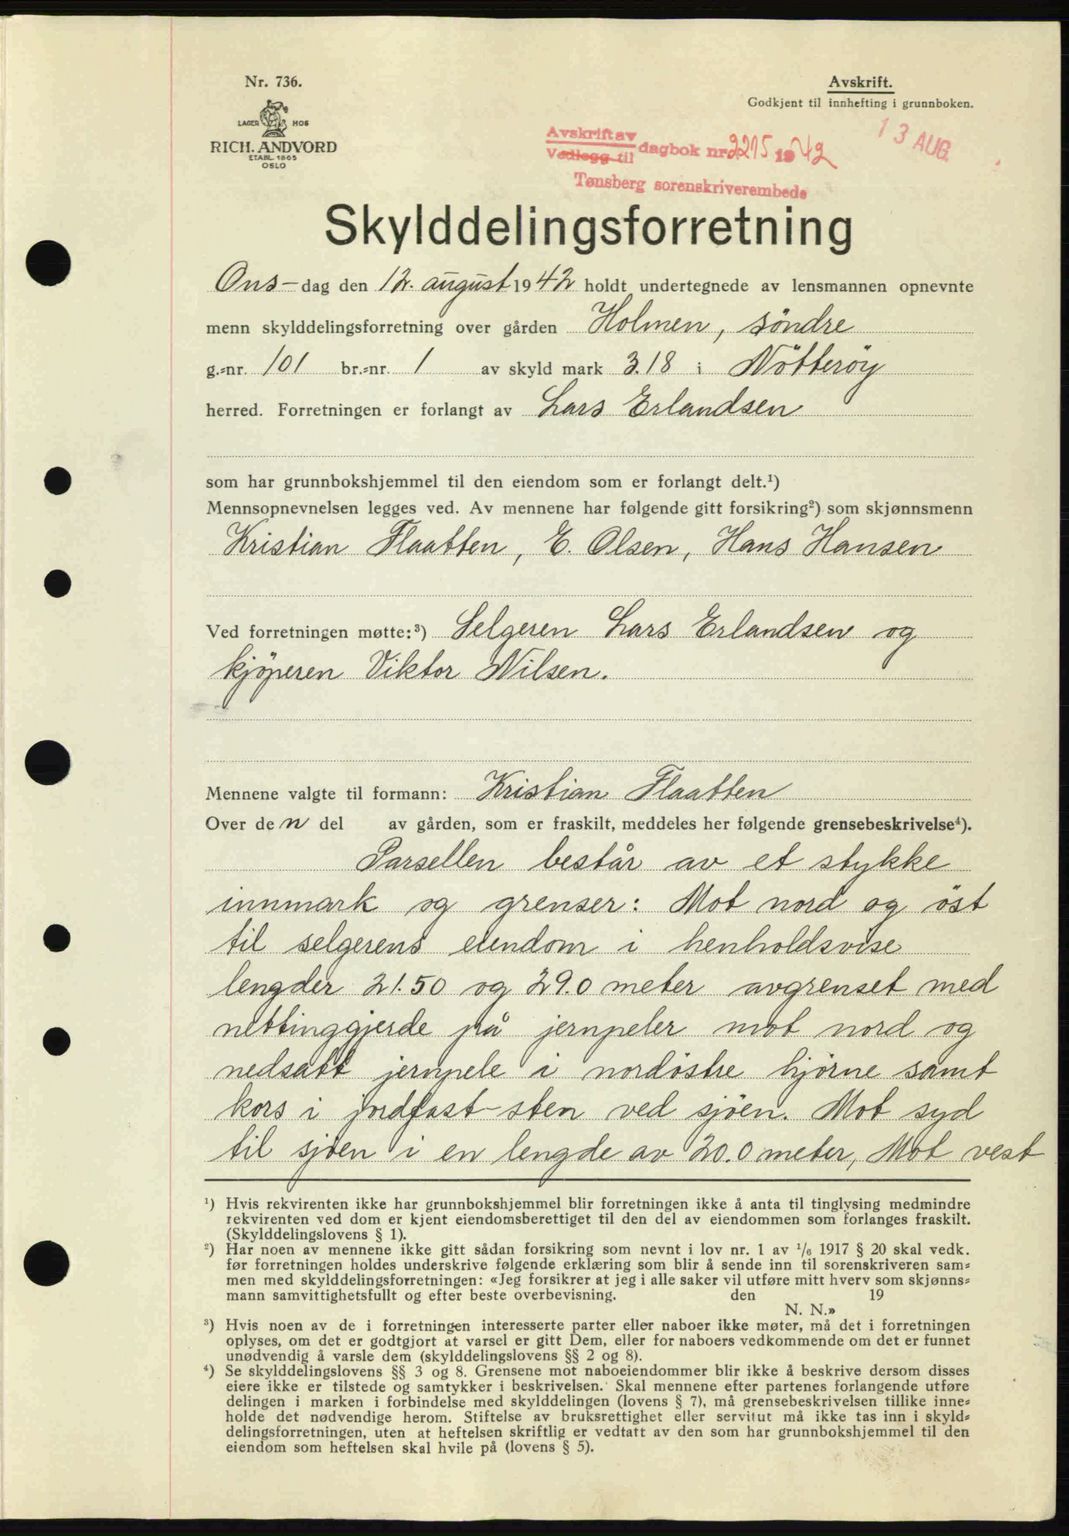 Nr. 736.
LAGER HOS
RICH. ANDVORD
ETABL. 1865
OSLO
Avskrift.
Godkjent til innhefting i grunnboken.
Avskrift av
Vedlegg til dagbok nr. 2215 1942
Tønsberg sorenskriverembede
13 AUG.
Skylddelingsforretning
Ons-dag den 12. august 1942 holdt undertegnede av lensmannen opnevnte
menn skylddelingsforretning over gården Holmen, söndre
g.=nr. 101 br.=nr. 1 av skyld mark 3.18 i Nötteröy
herred. Forretningen er forlangt av Lars Erlandsen
som har grunnbokshjemmel til den eiendom som er forlangt delt.¹)
Mennsopnevnelsen legges ved. Av mennene har følgende gitt forsikring²) som skjønnsmenn
Kristian Flaatten, E. Olsen, Hans Hansen
Ved forretningen møtte:³) Selgeren Lars Erlandsen og
kjöperen Viktor Nilsen.
Mennene valgte til formann: Kristian Flaatten
Over den del av gården, som er fraskilt, meddeles her følgende grensebeskrivelse⁴).
Parsellen består av et stykke
innmark og grenser: Mot nord og öst
til selgerens eiendom i henholdsvise
lengder 21.50 og 29.0 meter avgrenset med
nettinggjerde på jernpeler mot nord og
nedsatt jernpele i nordöstre hjörne samt
kors i jordfast sten ved sjöen. Mot syd
til sjöen i en lengde av 20.0 meter, Mot vest
¹) Hvis rekvirenten ikke har grunnbokshjemmel blir forretningen ikke å anta til tinglysing medmindre
rekvirenten ved dom er kjent eiendomsberettiget til den del av eiendommen som forlanges fraskilt.
(Skylddelingslovens § 1).
²) Har noen av mennene ikke gitt sådan forsikring som nevnt i lov nr. 1 av ¹/₆ 1917 § 20 skal vedk.
før forretningen holdes underskrive følgende erklæring som blir å sende inn til sorenskriveren sam=
men med skylddelingsforretningen: «Jeg forsikrer at jeg i alle saker vil utføre mitt hverv som skjønns=
mann samvittighetsfullt og efter beste overbevisning. den 19
N. N.»
³) Hvis noen av de i forretningen interesserte parter eller naboer ikke møter, må det i forretningen
oplyses, om det er godtgjort at varsel er gitt Dem, eller for naboers vedkommende om det er funnet
unødvendig å varsle dem (skylddelingslovens §§ 2 og 8).
⁴) Se skylddelingslovens §§ 3 og 8. Grensene mot naboeiendommer blir ikke å beskrive dersom disses
eiere ikke er tilstede og samtykker i beskrivelsen. Skal mennene efter partenes forlangende utføre
delingen i marken i forbindelse med skylddelingen (lovens § 7), må grensebeskrivelsen tillike inne=
holde det nødvendige herom. Stiftelse av bruksrettighet eller servitut må ikke tas inn i skyld=
delingsforretningen, uten at heftelsen skriftlig er vedtatt av den som har grunnbokshjemmel til den
eiendom som heftelsen skal hvile på (lovens § 5).